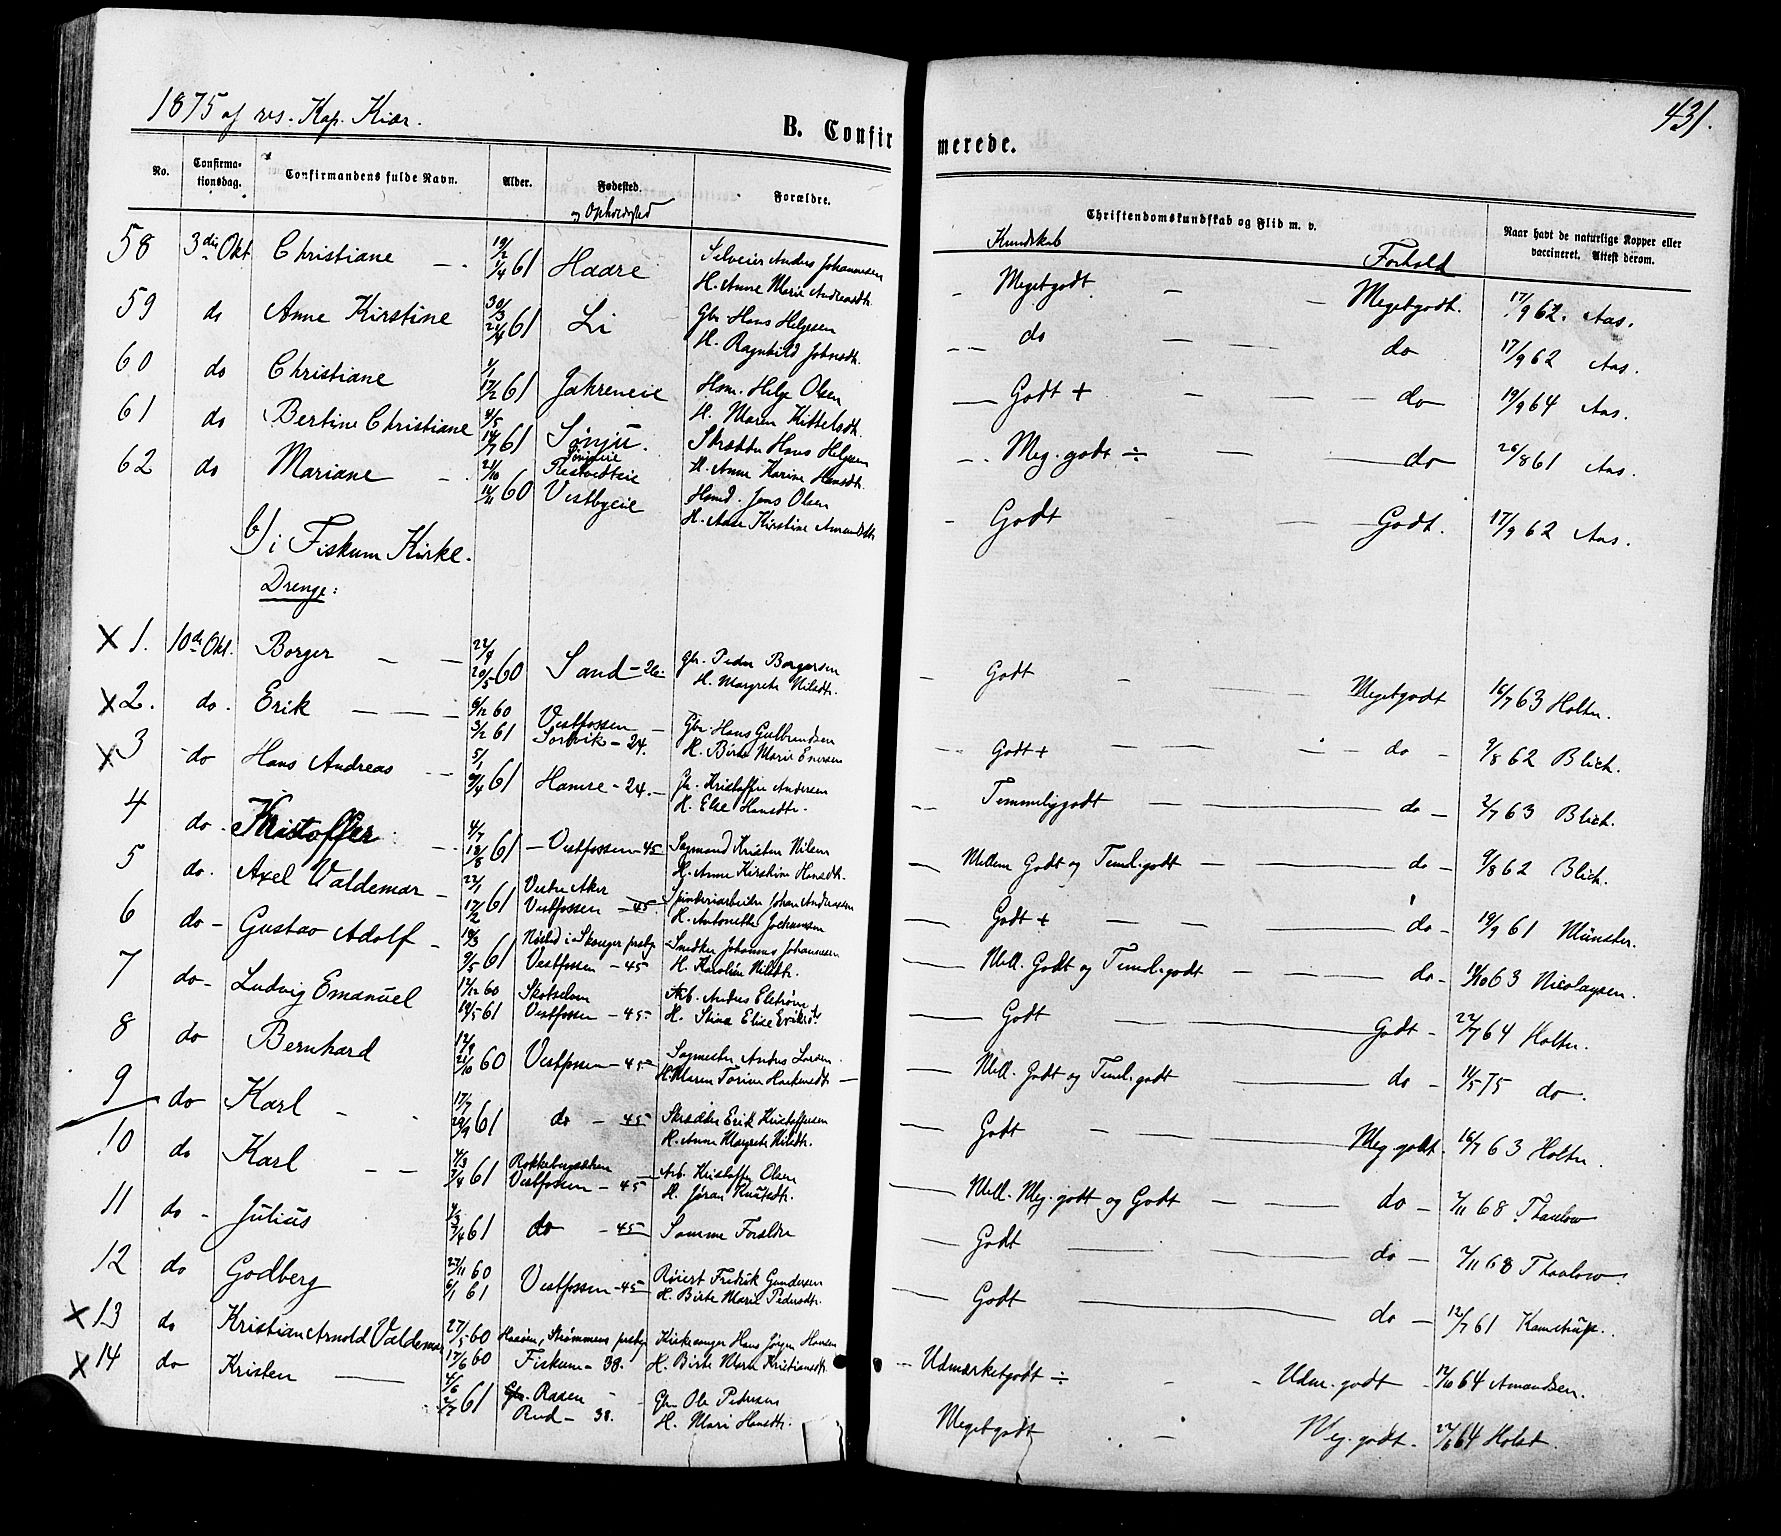 1875 af res. Kap. Kiær.
431.
B. Confirmerede.
No. Confirmationsdag. Confirmandens fulde Navn. Alder. Fødested. og Opholdsted Forældre. Christendomskundskab og Flid m. v. Naar havt de naturlige Kopper eller vaccineret. Attest derom.
Kundskab Forhold
58 3die Okt. Christiane 19/2 1/4 61 Haare Selveier Anders Johannesen
H. Anne Marie Andreasdtr. Megetgodt. Megetgodt. 17/9 62. Aas.
59 do Anne Kirstine 30/3 21/4 61 Li Gbr. Hans Helgesen
H. Ragnhild Johnsdtr. do do 17/9 62 Aas.
60 do Christiane 1/1 17/2 61 Jahreneie Hsm. Helge Olsen
H. Maren Kittelsdtr. Godt + do 19/9 64 Aas.
61 do Bertine Christiane 4/5 14/7 61 Sønju. Skrædder Hans Helgesen
H. Anne Karine Hansdtr. Meg. godt ÷ do 26/8 61 Aas.
62 do Mariane 21/10 11/11 60 Vestbyeie Hsmd. Jens Olsen
H. Anne Kirstine Amundsdtr. Godt Godt. 17/9 62 Aas.
b) i Fiskum Kirke.
Drenge:
X 1. 10de Okt. Borger 22/4 20/5 60 Sand - 26 - Gbr. Peder Borgersen
H. Margrete Nilsdtr. Godt Megetgodt 16/7 63 Holter.
X 2. do. Erik 6/12 60 3/2 61 Vestfossen
Sorbvik - 24. Gbr. Hans Gulbrandsen
H. Birte Marie Enersen Godt + do 9/8 62 Blich.
X 3 do Hans Andreas 5/1 9/4 61 Hamre - 24. Gbr. Kristoffer Andersen
H. Else Hansdtr. Temmeliggodt do 2/7 63 Blich.
4 do. Kristoffer 4/7 18/8 61 Vestfossen - 45 Sagmand Kristen Nilsen
H. Anne Kirstine Hansdtr. Mellem Godt og Teml. godt do 9/8 62 Blich.
5 do. Axel Valdemar 23/1 17/2 61 Vestre Aker
Vestfossen - 45. Spinderiarbeider Johan Andreasen
H. Antonette Jochumsen Godt + do 19/9 61 Münster.
6 do Gustav Adolf 18/3 9/5 61 Nøsted i Skouger prstgj.
Vestfossen - 45 Snedker Johannes Johannesen
H. Karoline Nilsdtr. Mell. Godt og Teml. godt do 11/10 63 Nicolaysen.
7 do Ludvig Emanuel 17/12 60 19/5 61 Skotselven
Vestfossen - 45 Arb. Anders Elstrøm
H. Stina Elise Eriksdtr. Godt Godt 22/7 64 Holter.
8 do Bernhard 12/9 21/10 60 Vestfossen - 45 Sagmester Anders Larsen
H. Maren Torine Haakensdtr. Mell. Godt og Teml. godt do 11/5 75 do.
9 do Karl 17/7 29/9 61 do - 45 Skrædder Erik Kristoffersen
H. Anne Margrete Nilsdtr. Godt Meg. godt 16/7 63 Holter.
10 do Karl 4/3 7/4 61 Rokkebergsæteren
Vestfossen - 45 Arb. Kristoffer Olsen
H. Jøran Knutsdtr. Mell. Meg. godt og Godt do 7/11 68 Thaulow
11 do Julius 4/3 7/4 61 do - 45 Samme Forældre Godt do 7/11 68 Thaulow
12 do Godberg 23/11 60 6/1 61 Vestfossen - 45 Røiert Fredrik Gundersen
H. Birte Marie Pedersdtr. Godt do 12/7 61 Kamstrup.
X 13 do Kristian Arnold Valdemar 27/5 60 17/6 60 Haaøen, Strømmens prstgj.
Fiskum - 38. Kirkesanger Hans Jørgen Hansen
H. Birte Marie Kristiansdtr. Udmærketgodt ÷ Udm. godt 12/10 64 Amundsen.
X 14 do Kristen 4/6 2/7 61 Raaen
Rud - 38. Gbr. Ole Pedersen
H. Mari Hansdtr. Megetgodt Meg. godt. 22/6 64 Holst.